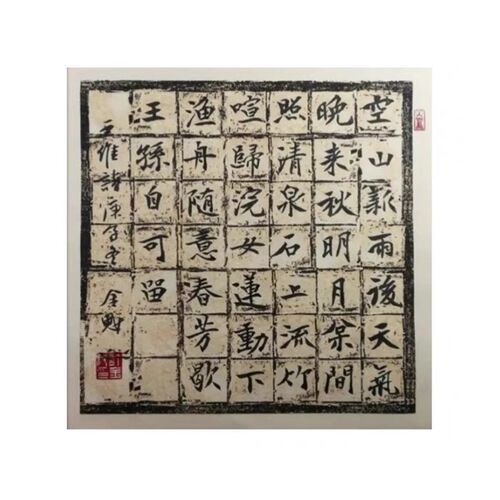 空山新雨後天氣
晚来秋明月松間
照清泉石上流竹
喧歸浣女蓮動下
漁舟随意春芳歇
王孫自可留
王維詩庚子冬